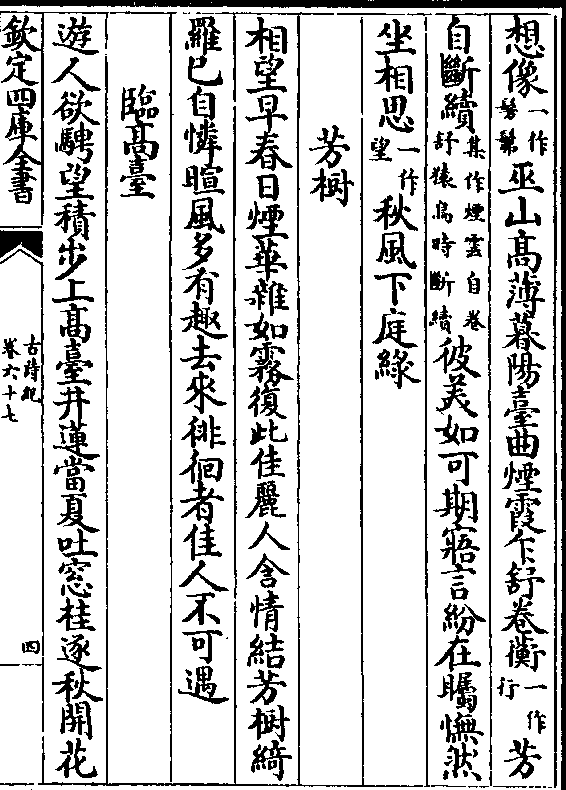 想像一作髣髴巫山高薄暮陽臺曲煙霞乍舒卷蘅一作行芳
自斷續集作煙雲自卷舒猿鳥時斷續彼美如可期寤言紛在矚憮然
坐相思一作望秋風下庭綠
芳樹
相望早春日煙華雜如霧復此佳麗人含情結芳樹綺
羅已自憐暄風多有趣去來徘徊者佳人不可遇
臨高臺
遊人欲騁望積步上高臺井蓮當夏吐窓桂逐秋開花
欽定四庫全書
古詩紀
卷六十七
四